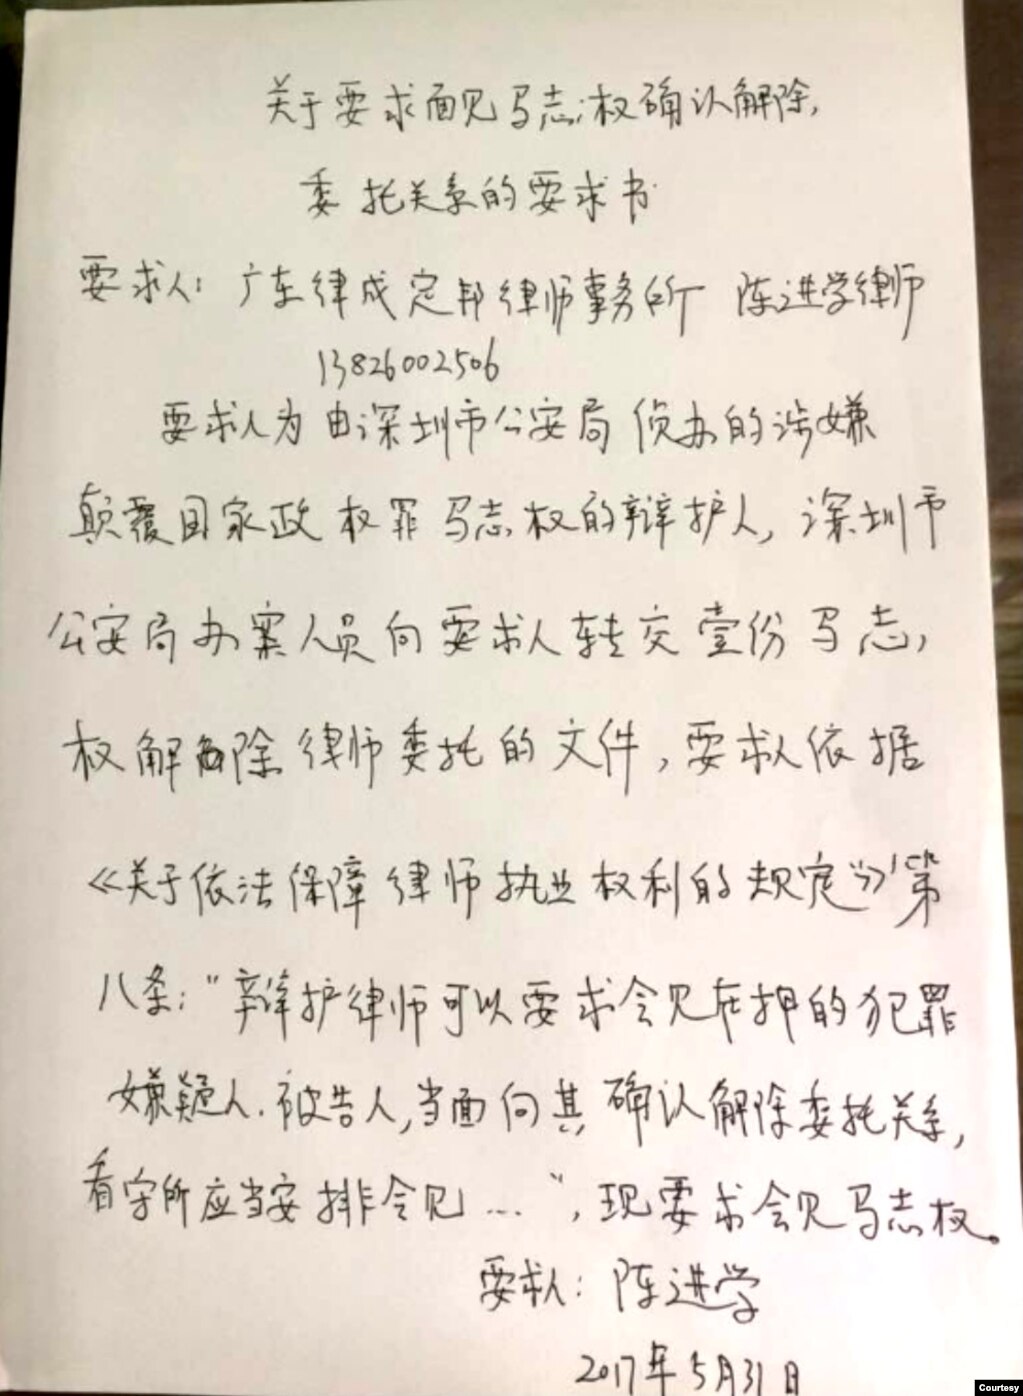 关于要求面见马志权确认解除
委托关系的要求书
要求人：广东律成定邦律师事务所 陈进学律师
13826002506
要求人为由深圳市公安局侦办的涉嫌
颠覆国家政权罪马志权的辩护人，深圳市
公安局办案人员向要求人转交壹份马志
权解除律师委托的文件，要求人依据
《关于依法保障律师执业权利的规定》第
八条：“辩护律师可以要求会见在押的犯罪
嫌疑人、被告人，当面向其确认解除委托关系，
看守所应当安排会见…”，现要求会见马志权。
要求人：陈进学
2017年5月31日
Courtesy